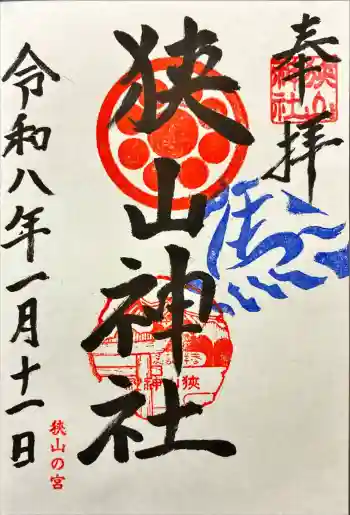 奉拝
狭山神社
馬
狭山神社
狭山神社
令和八年一月十一日
狭山の宮